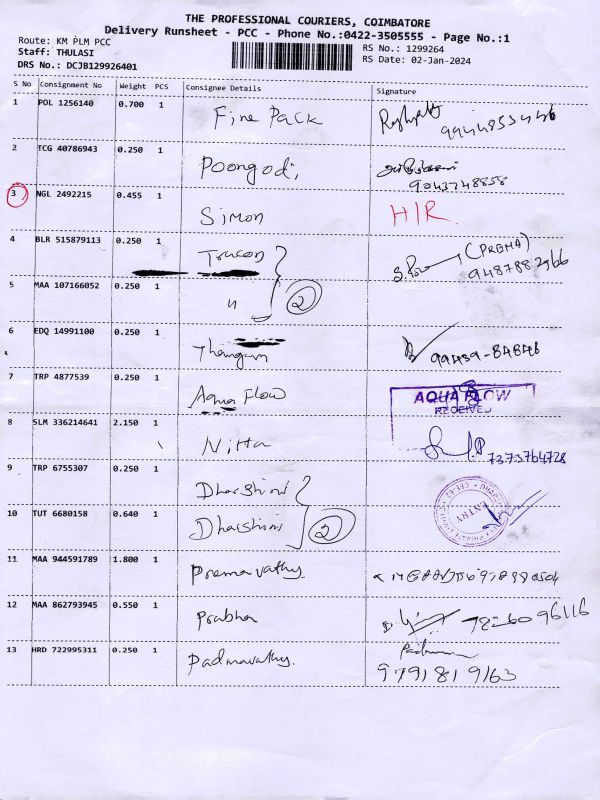 THE PROFESSIONAL COURIERS, COIMBATORE
Delivery Runsheet - PCC - Phone No.:0422-3505555 - Page No.:1
Route: KM PLM PCC
RS No.: 1299264
Staff: THULASI
RS Date: 02-Jan-2024
DRS No.: DCJB129926401
S No Consignment No Weight PCS Consignee Details Signature
1 POL 1256140 0.700 1 Fine Pack
2 TCG 40786943 0.250 1 Poongodi,
9043748858
3 NGL 2492215 0.455 1 Simon H/R
4 BLR 515879113 0.250 1 (PREMA)
5 MAA 107166052 0.250 1 " 2
6 EDQ 14991100 0.250 1 99439-84846
7 TRP 4877539 0.250 1 Aqua Flow AQUA FLOW
RECEIVED
8 SLM 336214641 2.150 1 Nitta
7373764728
9 TRP 6755307 0.250 1 Dharshini
10 TUT 6680158 0.640 1 Dharshini 2
ENTRY
11 MAA 944591789 1.800 1 Premavathy
12 MAA 862793945 0.550 1 Prabha
13 HRD 722995311 0.250 1 Padmavathy.
9791819163